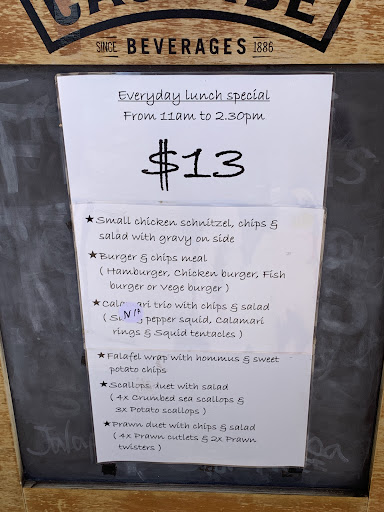 SINCE BEVERAGES 1886
Everyday lunch special
From 11am to 2.30pm
$13
★ Small chicken schnitzel, chips &
salad with gravy on side
★ Burger & chips meal
( Hamburger, Chicken burger, Fish
burger or Vege burger )
★ Calamari trio with chips & salad
( pepper squid, Calamari
rings & Squid tentacles )
★ Falafel wrap with hommus & sweet
potato chips
★ Scallops duet with salad
( 4x Crumbed sea scallops &
3x Potato scallops )
★ Prawn duet with chips & salad
( 4x Prawn cutlets & 2x Prawn
twisters )